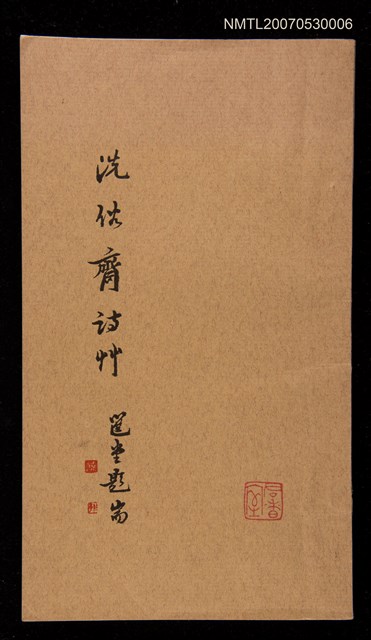 NMTL20070530006
洗俗齋詩艸
選堂題耑